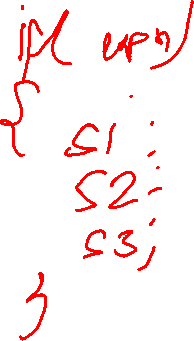 if( expn)
{
S1 ;
S2 ;
S3;
}